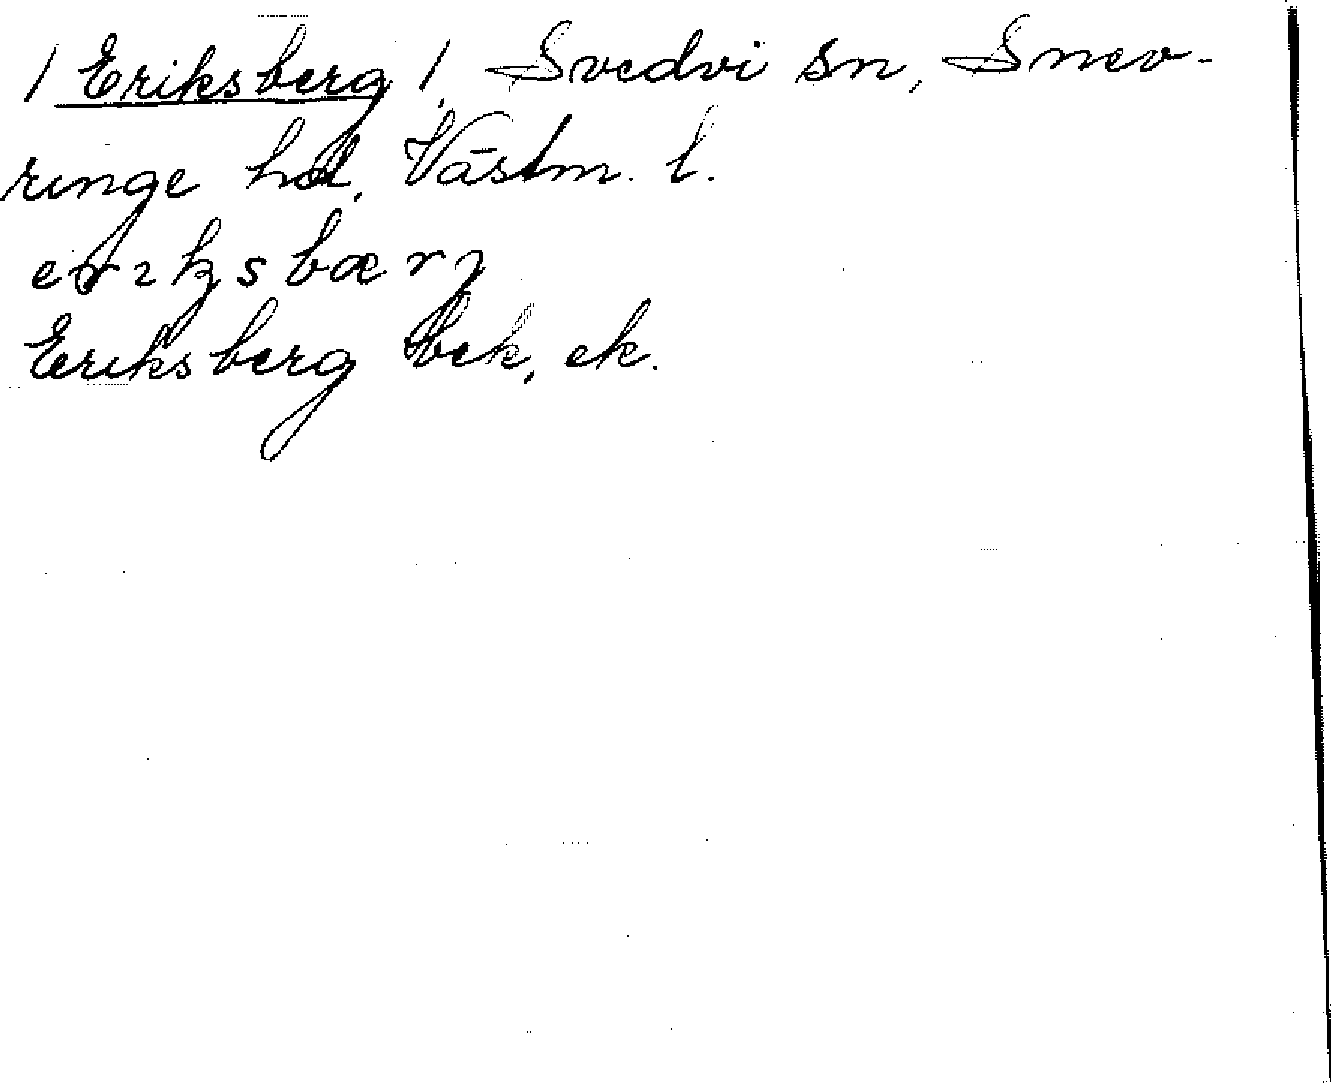 / Eriksberg /, Svedvi sn, Snev-
ringe hd, Västm. l.
Eriksberg bek, ek.